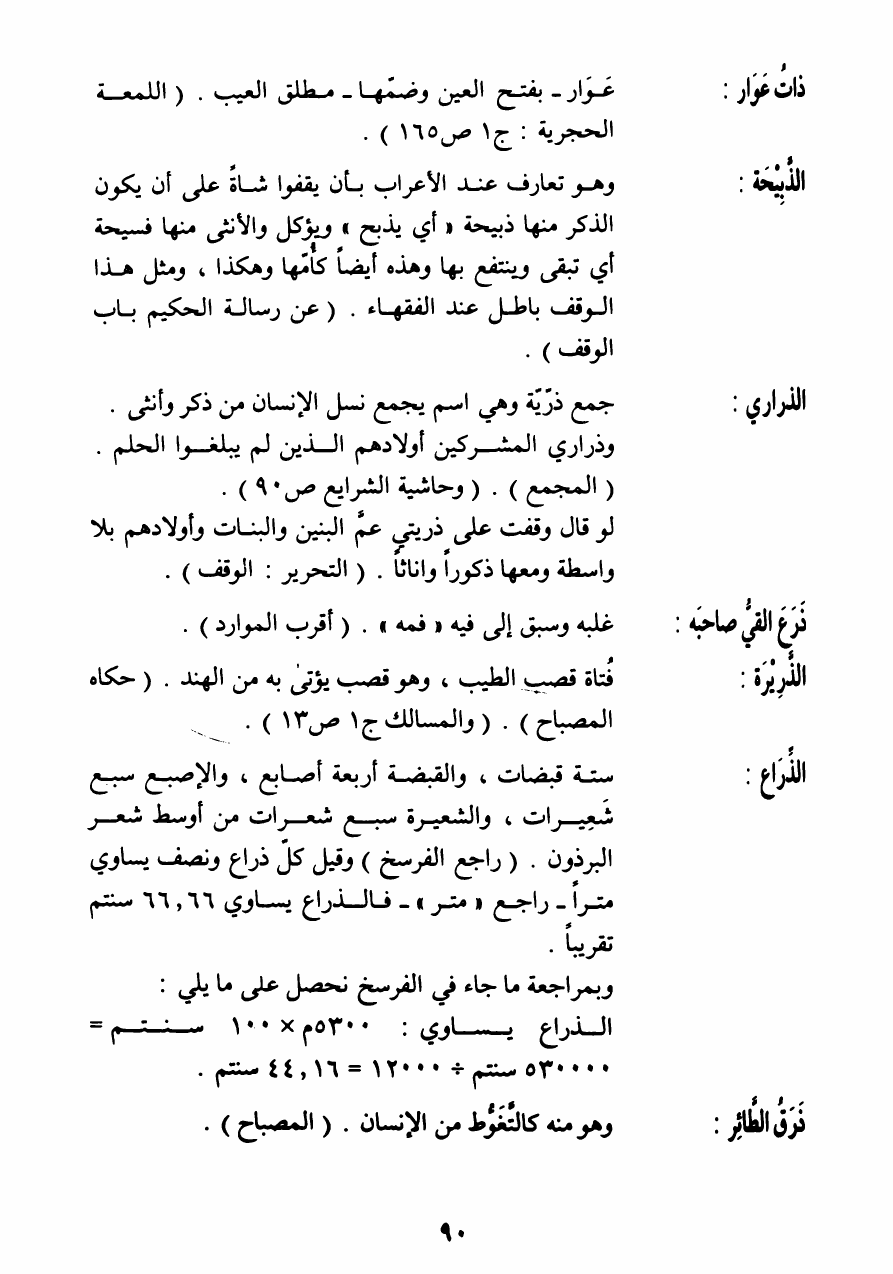 ذاتُ عَوَار : عَوَار ـ بفتح العين وضمّها ـ مطلق العيب . ( اللمعة
الحجرية : ج١ ص١٦٥ ) .
الذَّبِيْحَة : وهو تعارف عند الأعراب بأن يقفوا شاةً على أن يكون
الذكر منها ذبيحة « أي يذبح » ويؤكل والأنثى منها فسيحة
أي تبقى وينتفع بها وهذه أيضاً كأُمّها وهكذا ، ومثل هذا
الوقف باطل عند الفقهاء . ( عن رسالة الحكيم باب
الوقف ) .
الذراري : جمع ذرّيّة وهي اسم يجمع نسل الإنسان من ذكر وأنثى .
وذراري المشركين أولادهم الذين لم يبلغوا الحلم .
( المجمع ) . ( وحاشية الشرايع ص٩٠ ) .
لو قال وقفت على ذريتي عمَّ البنين والبنات وأولادهم بلا
واسطة ومعها ذكوراً واناثاً . ( التحرير : الوقف ) .
ذَرَعَ القيُّ صاحبَه : غلبه وسبق إلى فيه « فمه » . ( أقرب الموارد ) .
الذَّرِيْرَة : فُتاة قصب الطيب ، وهو قصب يؤتىٰ به من الهند . ( حكاه
المصباح ) . ( والمسالك ج١ ص١٣ ) .
الذِّرَاع : ستة قبضات ، والقبضة أربعة أصابع ، والإصبع سبع
شَعِيرات ، والشعيرة سبع شعرات من أوسط شعر
البرذون . ( راجع الفرسخ ) وقيل كلّ ذراع ونصف يساوي
متراً ـ راجع « متر » ـ فالذراع يساوي ٦٦,٦٦ سنتم
تقريباً .
وبمراجعة ما جاء في الفرسخ نحصل على ما يلي :
الذراع يساوي : ٥٣٠٠م × ١٠٠ سنتم =
٥٣٠٠٠٠ سنتم ÷ ١٢٠٠٠ = ٤٤,١٦ سنتم .
ذَرَقُ الطَّائِر : وهو منه كالتَّغَوُّط من الإنسان . ( المصباح ) .
٩٠